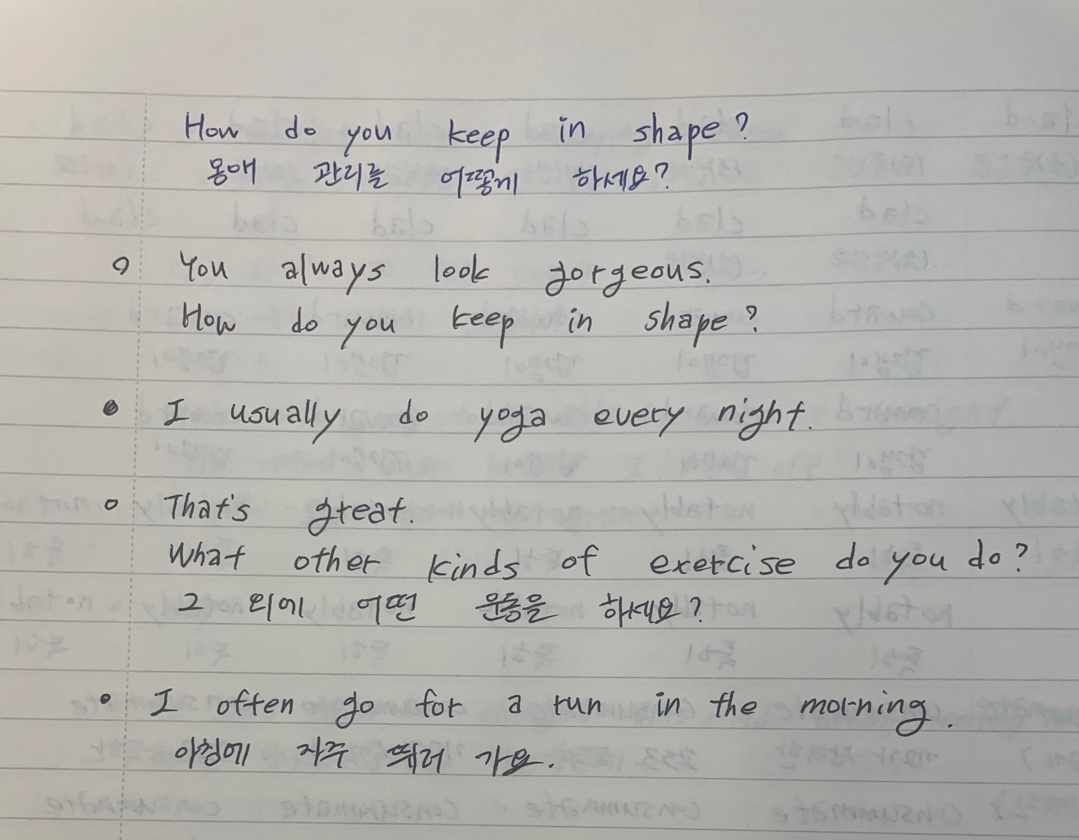 How do you keep in shape?
몸매 관리를 어떻게 하세요?
You always look gorgeous.
How do you keep in shape?
I usually do yoga every night.
That's great.
What other kinds of exercise do you do?
그 외에 어떤 운동을 하세요?
I often go for a run in the morning.
아침에 자주 뛰러 가요.